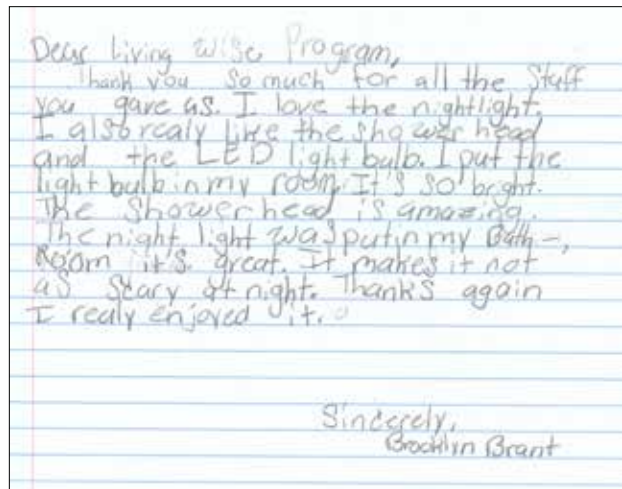 Dear Living Wise Program,
Thank you so much for all the stuff
you gave us. I love the nightlight,
I also realy like the shower head
and the LED light bulb. I put the
light bulb in my room. It's so bright.
The showerhead is amazing.
The night light was put in my Bath-,
Room it's great. It makes it not
as scary at night. Thanks again
I realy enjoyed it.
Sincerely,
Brooklyn Brant